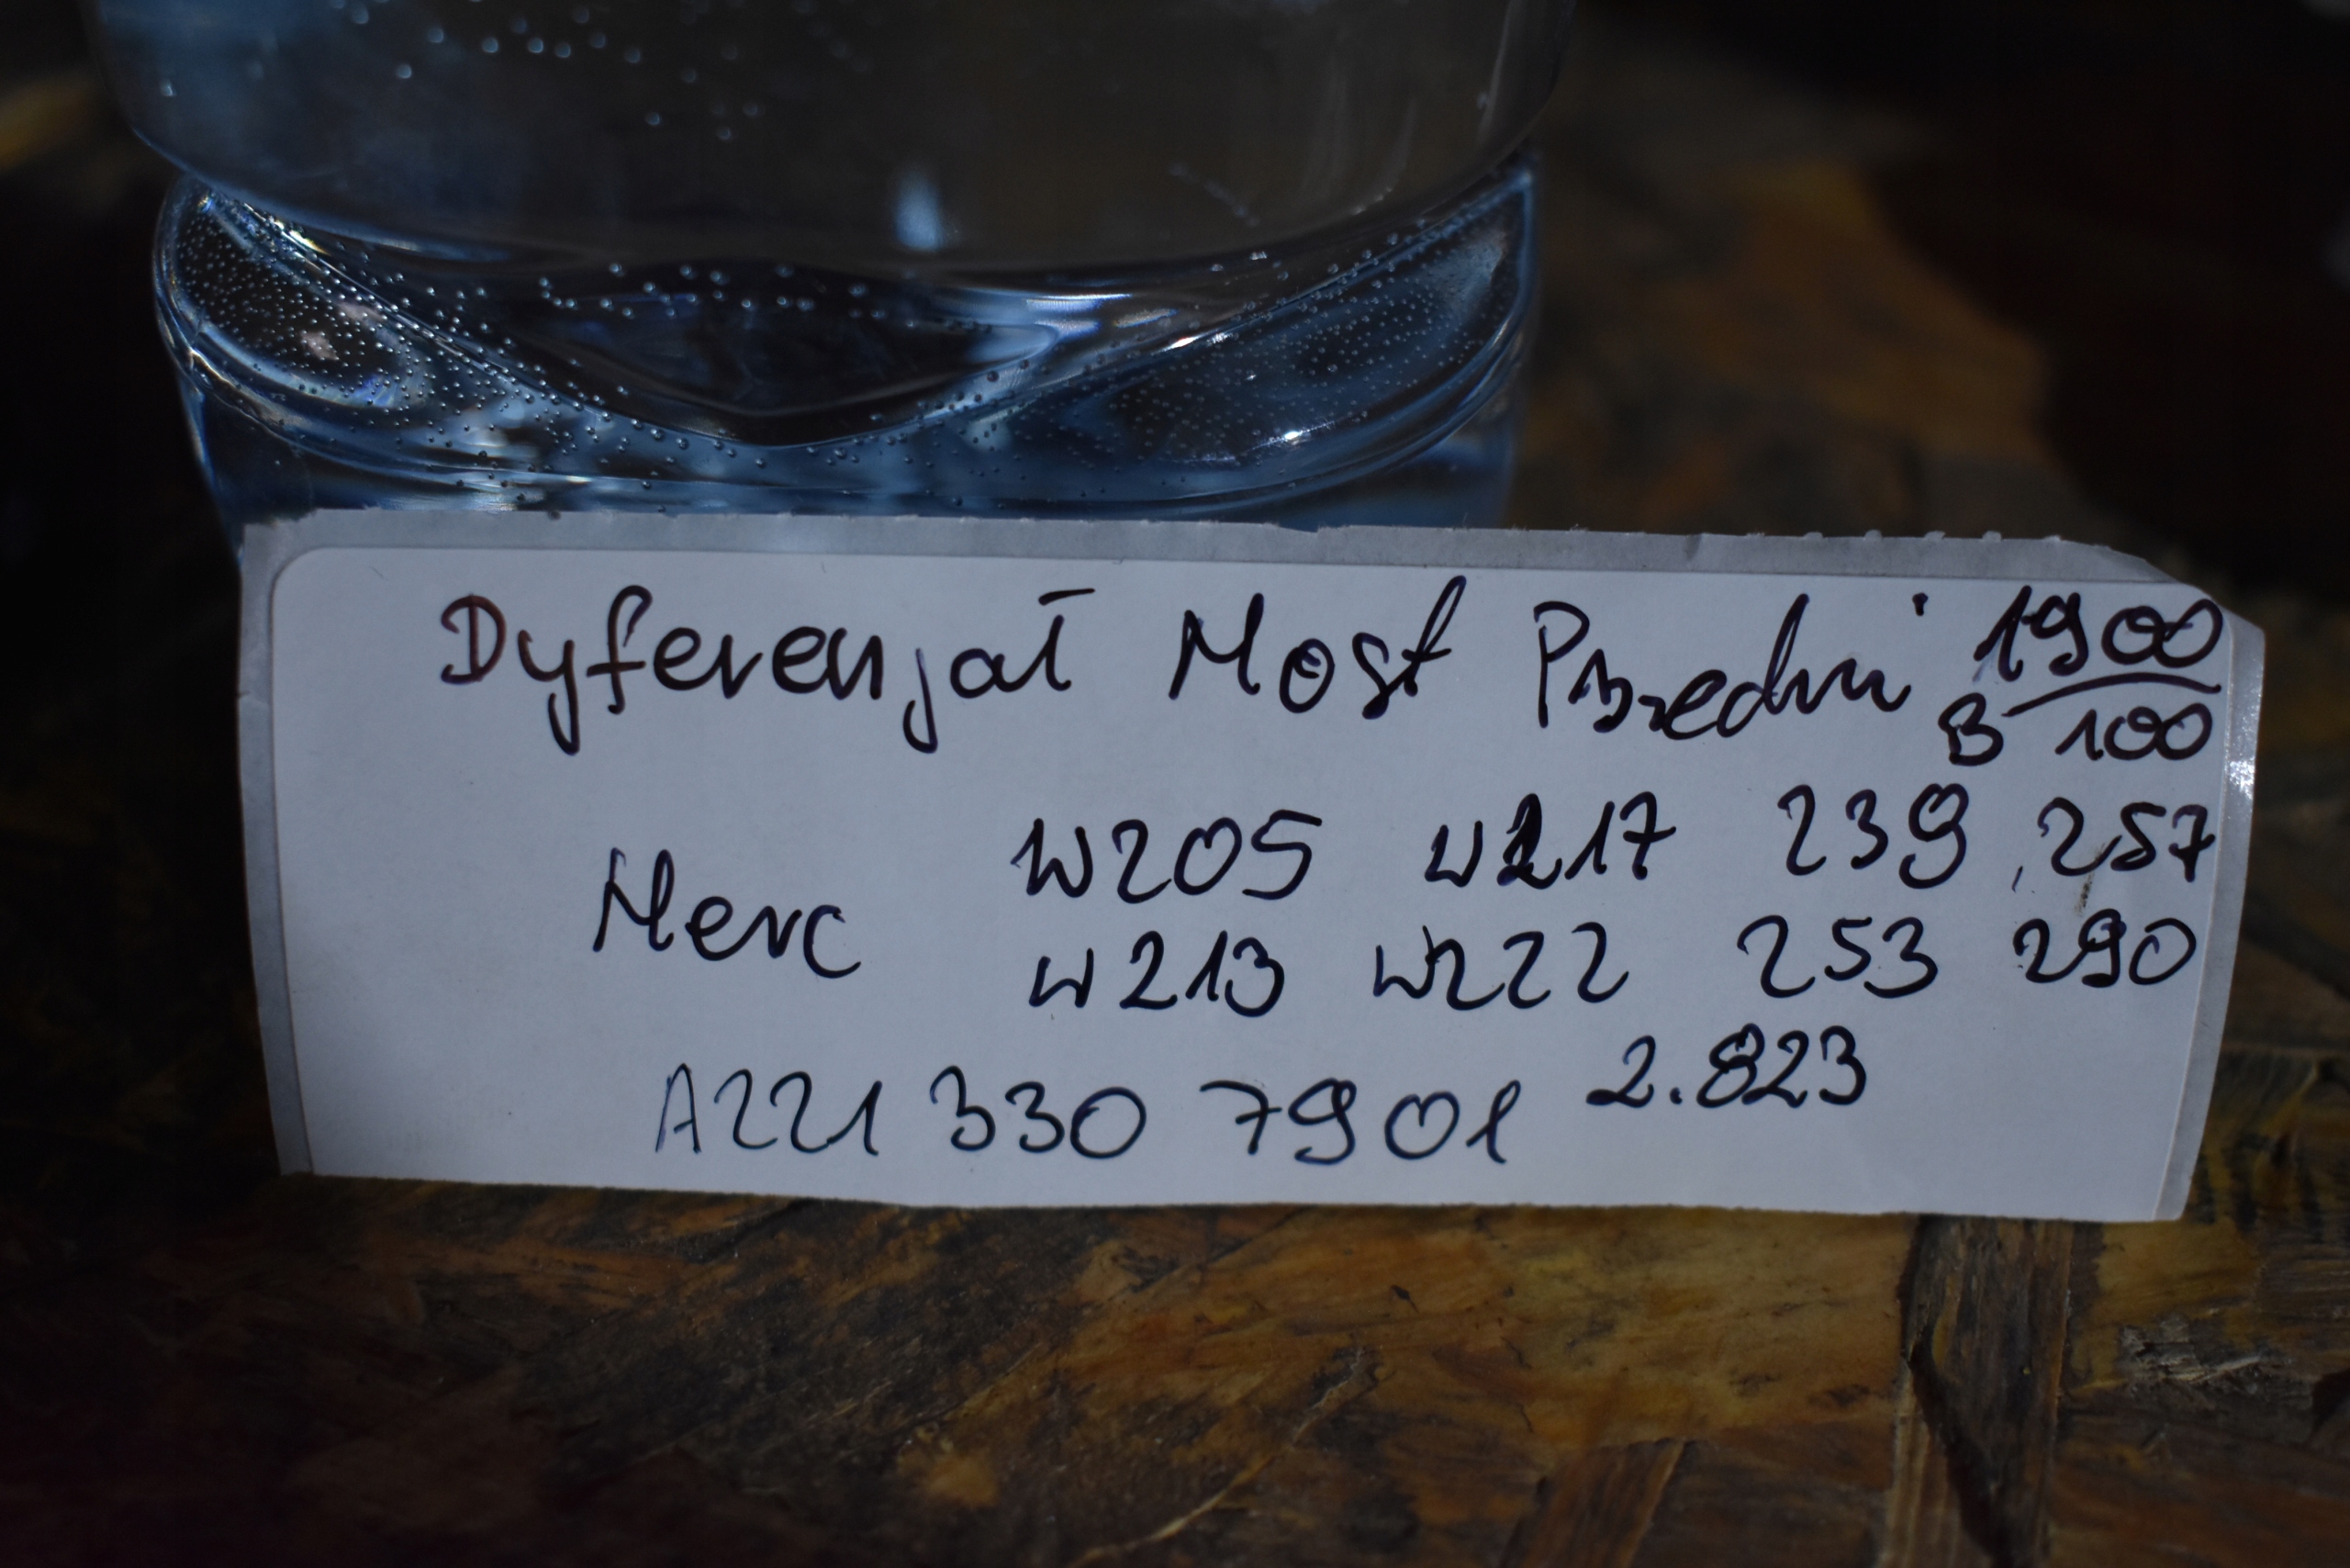 Dyferenjał Most Przedni 1900
B 100
W205 W217 239, 257
Merc
W213 W222 253 290
A221 330 7901 2.823